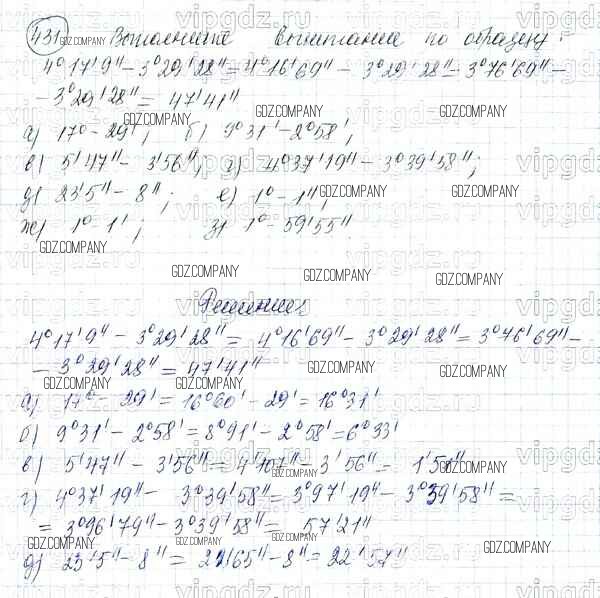 431 Выполните вычитание по образцу:
4°17'9" - 3°29'28" = 4°16'69" - 3°29'28" = 3°76'69" -
- 3°29'28" = 47'41"
а) 17° - 29'; б) 9°31' - 2°58';
в) 5'47" - 3'56"; г) 4°37'19" - 3°39'58";
д) 23'5" - 8"; е) 1° - 1";
ж) 1° - 1'; з) 1° - 59'55"
Решение:
4°17'9" - 3°29'28" = 4°16'69" - 3°29'28" = 3°76'69" -
- 3°29'28" = 47'41"
а) 17° - 29' = 16°60' - 29' = 16°31'
б) 9°31' - 2°58' = 8°91' - 2°58' = 6°33'
в) 5'47" - 3'56" = 4'107" - 3'56" = 1'51"
г) 4°37'19" - 3°39'58" = 3°97'19" - 3°39'58" =
= 3°96'79" - 3°39'58" = 57'21"
д) 23'5" - 8" = 22'65" - 8" = 22'57"
GDZ.COMPANY
vipgdz.ru